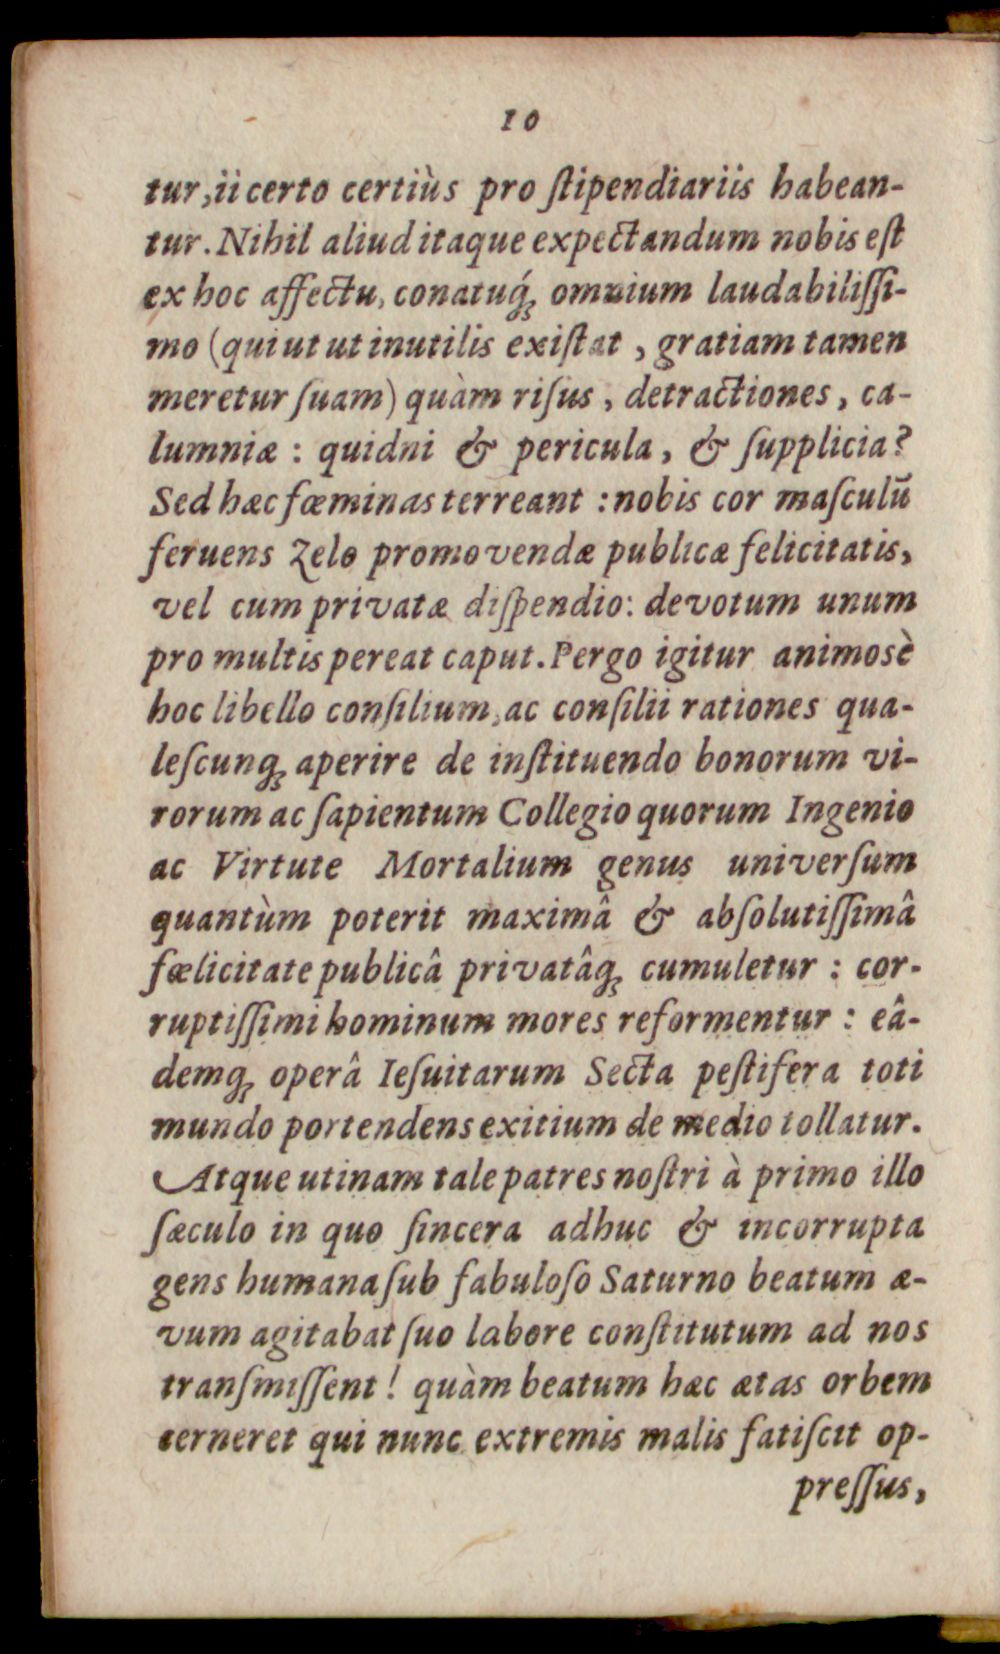 10
tur, ii certo certiùs pro ſtipendiariis habean-
tur. Nihil aliud itaque expectandum nobis eſt
ex hoc affectu, conatuq́ꝫ omnium laudabiliſſi-
mo (qui ut ut inutilis exiſtat, gratiam tamen
meretur ſuam) quàm riſus, detractiones, ca-
lumniæ: quidni & pericula, & ſupplicia?
Sed hæc fœminas terreant: nobis cor maſculū
feruens Zelo promovendæ publicæ felicitatis,
vel cum privatæ diſpendio: devotum unum
pro multis pereat caput. Pergo igitur animosè
hoc libello conſilium, ac conſilii rationes qua-
leſcunqꝫ aperire de inſtituendo bonorum vi-
rorum ac ſapientum Collegio quorum Ingenio
ac Virtute Mortalium genus univerſum
quantùm poterit maximâ & abſolutiſſimâ
fœlicitate publicâ privatâqꝫ cumuletur: cor-
ruptiſſimi hominum mores reformentur: eâ-
demqꝫ operâ Ieſuitarum Secta peſtifera toti
mundo portendens exitium de medio tollatur.
Atque utinam tale patres noſtri à primo illo
ſæculo in quo ſincera adhuc & incorrupta
gens humana ſub fabuloſo Saturno beatum æ-
vum agitabat ſuo labore conſtitutum ad nos
tranſmiſſent! quàm beatum hæc ætas orbem
cerneret qui nunc extremis malis fatiſcit op-
preſſus,